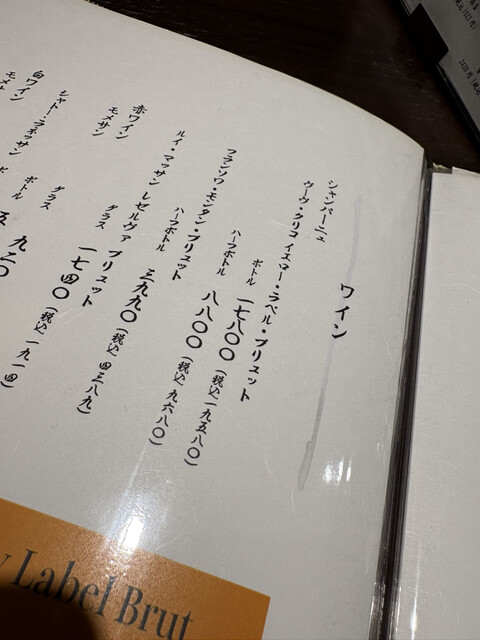 ワイン
シャンパーニュ
ヴーヴ・クリコ イエロー・ラベル・ブリュット
ボトル 一七八〇〇(税込 一九五八〇)
ハーフボトル 八八〇〇(税込 九六八〇)
フランソワ・モンタン・ブリュット
ハーフボトル 三九九〇(税込 四三八九)
ルイ・マッサン レゼルヴァ ブリュット
グラス 一七四〇(税込 一九一四)
赤ワイン
モメサン
グラス 九二〇
ボトル 五
シャトー・ラネッサン
白ワイン
モメサ
Label Brut